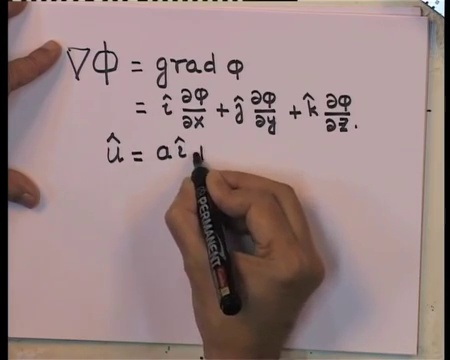 ∇Φ = grad φ
= î ∂φ/∂x + ĵ ∂φ/∂y + k̂ ∂φ/∂z.
û = a î
PERMANENT